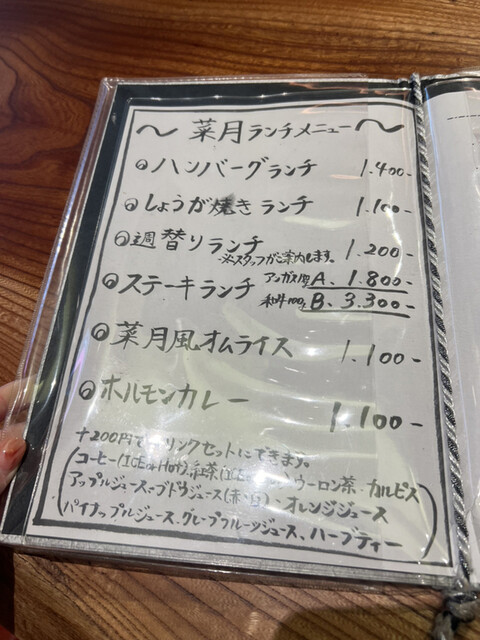 〜菜月ランチメニュー〜
ハンバーグランチ 1.400-
しょうが焼きランチ 1.100-
週替りランチ 1.200-
※スタッフがご案内します。
ステーキランチ アンガス A、1.800-
和牛 B、3.300-
菜月風オムライス 1.100-
ホルモンカレー 1.100-
+200円で リンクセットにできます。
(コーヒー(ICE or Hot)、紅茶 ウーロン茶・カルピス
アップルジュース・ブドウジュース(赤・白)・オレンジジュース
パイナップルジュース、グレープフルーツジュース、ハーブティー)